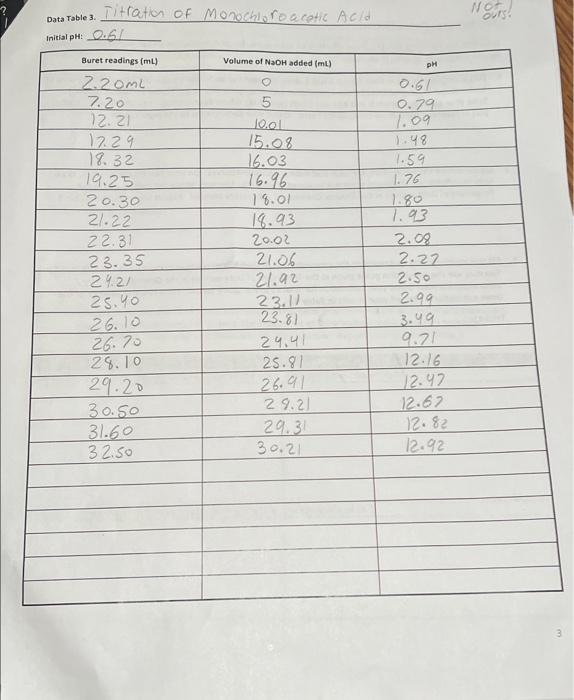 Not ours!
Data Table 3. Titration of Monochloroacetic Acid
Initial pH: 0.61
Buret readings (mL) Volume of NaOH added (mL) pH
2.20mL 0 0.61
7.20 5 0.79
12.21 10.01 1.09
17.29 15.08 1.48
18.32 16.03 1.59
19.25 16.96 1.76
20.30 18.01 1.80
21.22 18.93 1.93
22.31 20.02 2.08
23.35 21.06 2.27
24.21 21.92 2.50
25.40 23.11 2.99
26.10 23.81 3.49
26.70 24.41 9.71
28.10 25.81 12.16
29.20 26.91 12.47
30.50 28.21 12.67
31.60 29.31 12.82
32.50 30.21 12.92
3